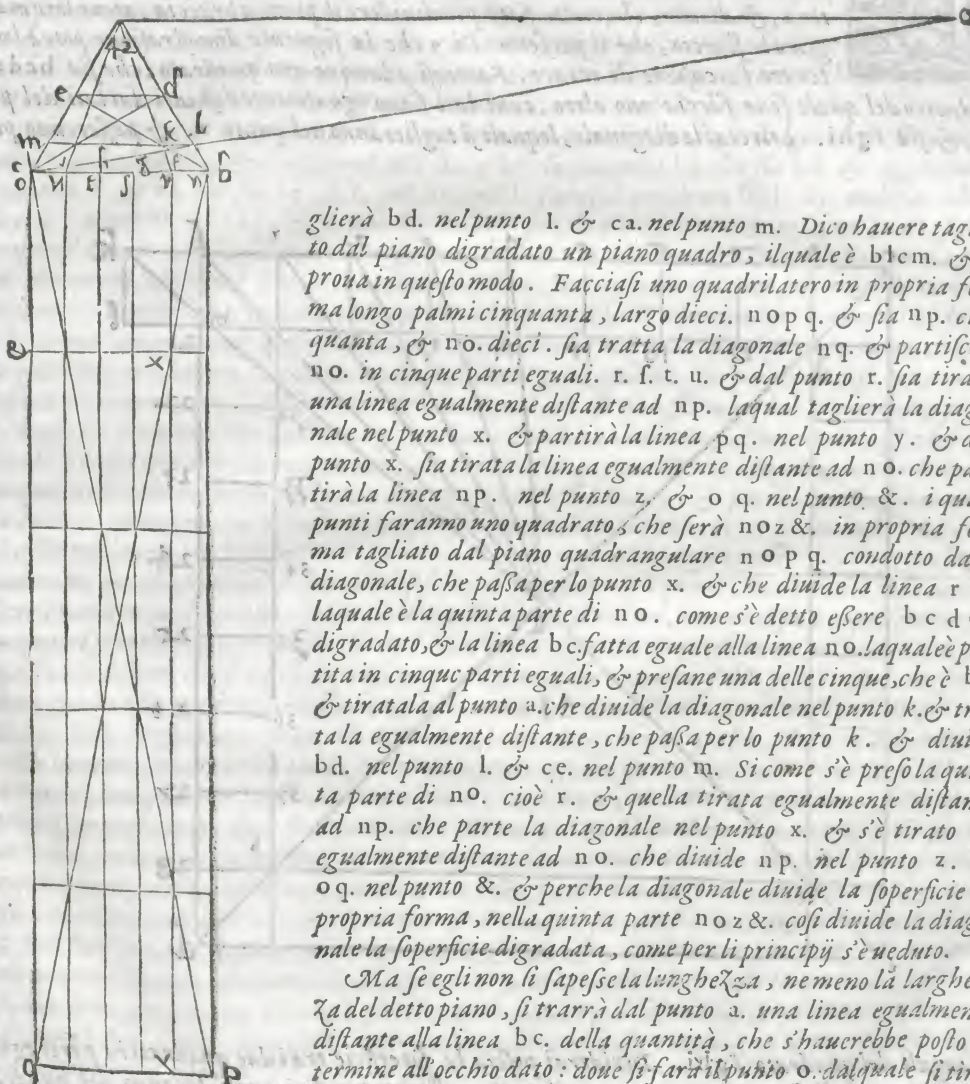 glierà bd. nel punto l. & ca. nel punto m. Dico hauere tagl
to dal piano digradato un piano quadro, ilquale è blcm. &
proua in questo modo. Facciasi uno quadrilatero in propria f
ma longo palmi cinquanta, largo dieci. nopq. & sia np. c
quanta, & no. dieci. sia tratta la diagonale nq. & partisc
no. in cinque parti eguali. r. s. t. u. & dal punto r. sia tira
una linea egualmente distante ad np. laqual taglierà la diag
nale nel punto x. & partirà la linea pq. nel punto y. & d
punto x. sia tirata la linea egualmente distante ad no. che pa
tirà la linea np. nel punto z. & oq. nel punto &. i qu
punti faranno uno quadrato, che serà noz&. in propria fo
ma tagliato dal piano quadrangulare nopq. condotto da
diagonale, che passa per lo punto x. & che diuide la linea r
laquale è la quinta parte di no. come s'è detto essere bcd
digradato, & la linea bc. fatta eguale alla linea no. laquale è p
tita in cinque parti eguali, & presane una delle cinque, che è b
& tiratala al punto a. che diuide la diagonale nel punto k. & tr
ta la egualmente distante, che passa per lo punto k. & diui
bd. nel punto l. & ce. nel punto m. Si come s'è preso la qu
ta parte di no. cioè r. & quella tirata egualmente distan
ad np. che parte la diagonale nel punto x. & s'è tirato
egualmente distante ad no. che diuide np. nel punto z.
oq. nel punto &. & perche la diagonale diuide la soperficie
propria forma, nella quinta parte noz&. cosi diuide la diag
nale la soperficie digradata, come per li principij s'è ueduto.
Ma se egli non si sapesse la lunghezza, ne meno la larghe
za del detto piano, si trarrà dal punto a. una linea egualmen
distante alla linea bc. della quantità, che s'hauerebbe posto
termine all'occhio dato: doue si farà il punto o. dalquale si tir
o
a
e d
m k l
c b
x
q y p